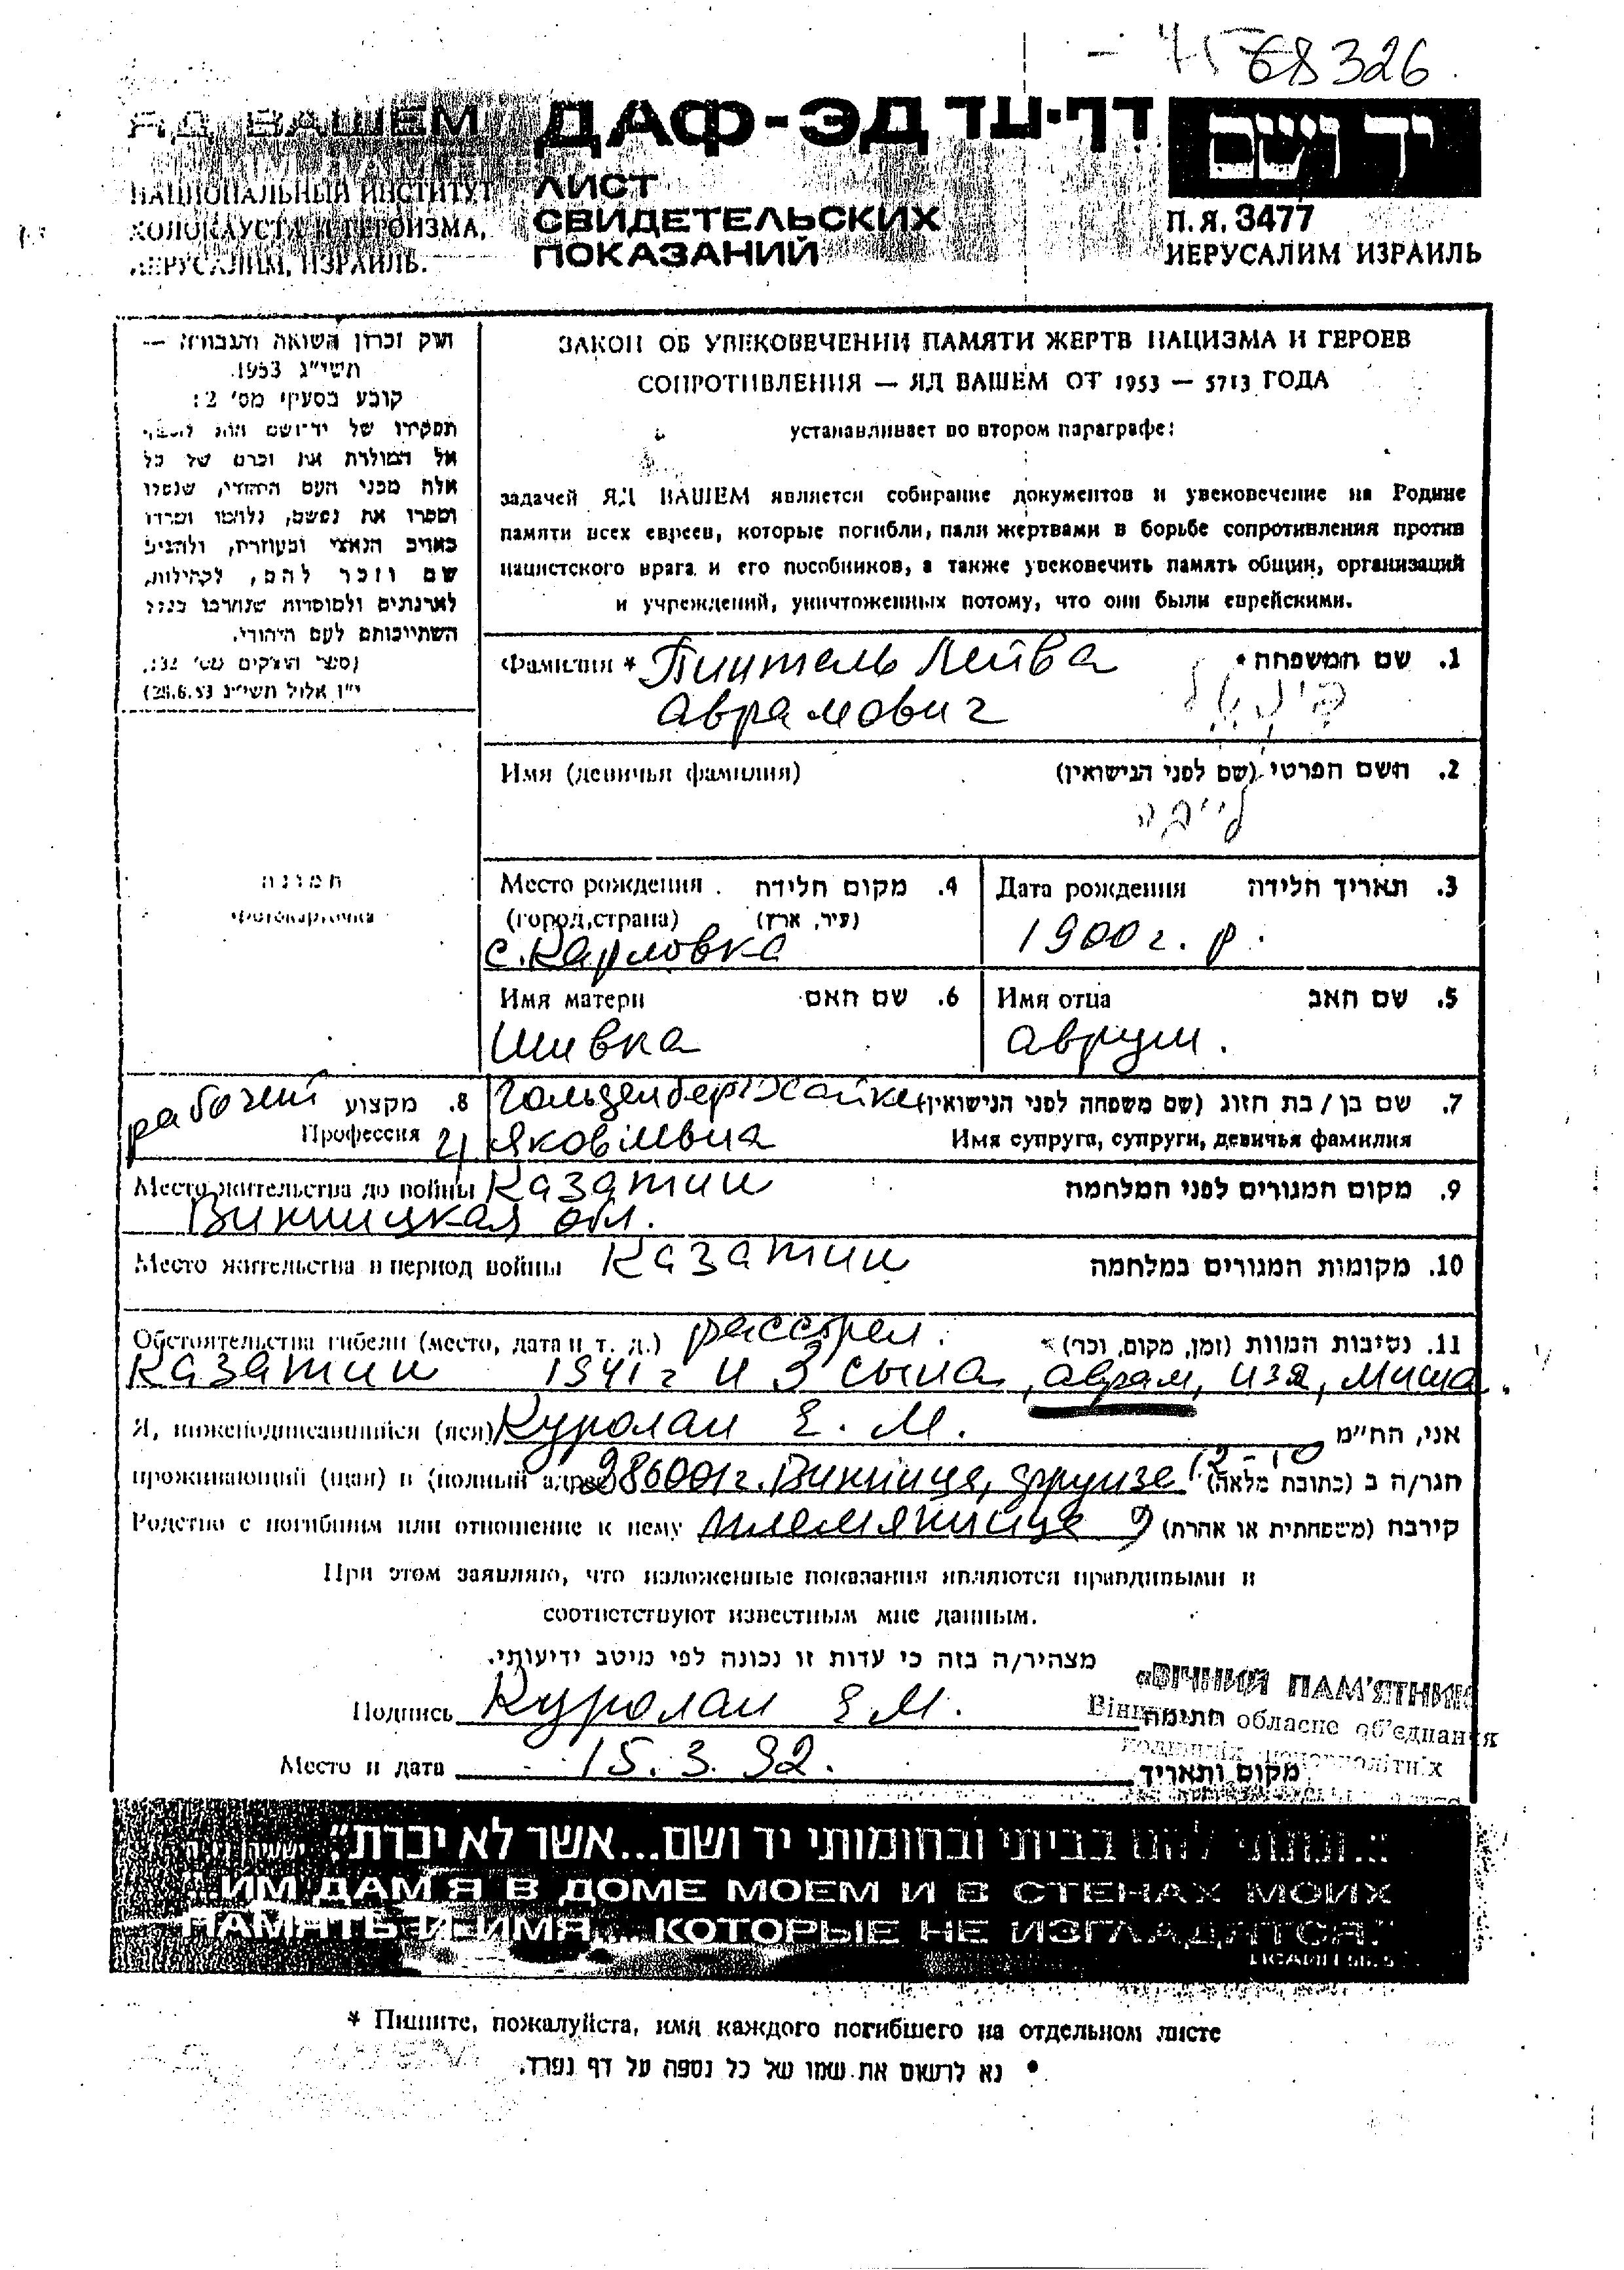 68326
ЯД ВАШЕМ ДАФ-ЭД דף-עד יד ושם
НАЦИОНАЛЬНЫЙ ИНСТИТУТ
ХОЛОКАУСТА И ГЕРОИЗМА,
ИЕРУСАЛИМ, ИЗРАИЛЬ.
ЛИСТ
СВИДЕТЕЛЬСКИХ
ПОКАЗАНИЙ
П. Я. 3477
ИЕРУСАЛИМ ИЗРАИЛЬ
חוק זכרון השואה והגבורה —
תשי"ג 1953
קובע בסעיף מס' 2:
תפקידו של יד־ושם הוא לאסוף
אל המולדת את זכרם של כל
אלה מבני העם היהודי, שנפלו
ומסרו את נפשם, נלחמו ומרדו
באויב הנאצי ובעוזריו, ולהציב
שם וזכר להם, לקהילות,
לארגונים ולמוסדות שנחרבו בגלל
השתייכותם לעם היהודי.
(ספר החוקים מס' 132,
י"ז אלול תשי"ג 28.6.53)
תמונה
Фотокарточка
ЗАКОН ОБ УВЕКОВЕЧЕНИИ ПАМЯТИ ЖЕРТВ НАЦИЗМА И ГЕРОЕВ
СОПРОТИВЛЕНИЯ — ЯД ВАШЕМ ОТ 1953 — 5713 ГОДА
устанавливает во втором параграфе:
задачей ЯД ВАШЕМ является собирание документов и увековечение на Родине
памяти всех евреев, которые погибли, пали жертвами в борьбе сопротивления против
нацистского врага и его пособников, а также увековечить память общин, организаций
и учреждений, уничтоженных потому, что они были еврейскими.
Фамилия * Пинтель Лейва 1. שם המשפחה *
Аврамович פינטל
Имя (девичья фамилия) 2. השם הפרטי (שם לפני הנישואין)
לייבה
Место рождения 4. מקום הלידה
(город,страна) (עיר, ארץ)
с. Карловка
Дата рождения 3. תאריך הלידה
1900 г. р.
Имя матери 6. שם האם
Шивка
Имя отца 5. שם האב
Аврум.
рабочий 8. מקצוע
Профессия
Гольденберг Хайка 7. שם בן / בת הזוג (שם משפחה לפני הנישואין)
Яковлевна Имя супруга, супруги, девичья фамилия
Место жительства до войны Казатин 9. מקום המגורים לפני המלחמה
Винницкая обл.
Место жительства в период войны Казатин 10. מקומות המגורים במלחמה
Обстоятельства гибели (место, дата и т. д.) расстрел. 11. נסיבות המוות (זמן, מקום, וכו')
Казатин 1941 г и 3 сына, Аврам, Изя, Миша.
Я, нижеподписавшийся (аяся) Куролап Е. М. אני, הח"מ
проживающий (щая) в (полный адрес) 286001 г. Винница, Фрунзе 12-10 הגר/ה ב (כתובת מלאה)
Родство с погибшим или отношение к нему племянница קירבה (משפחתית או אחרת)
При этом заявляю, что изложенные показания являются правдивыми и
соответствуют известным мне данным.
מצהיר/ה בזה כי עדות זו נכונה לפי מיטב ידיעותי.
Подпись Куролап Е М. חתימה
Место и дата 15. 3. 92. מקום ותאריך
«ВІЧНИЙ ПАМ'ЯТНИК
обласне об'єднання
"...ונתתי להם בביתי ובחומותי יד ושם...אשר לא יכרת".
"...ИМ ДАМ Я В ДОМЕ МОЕМ И В СТЕНАХ МОИХ
ПАМЯТЬ И ИМЯ... КОТОРЫЕ НЕ ИЗГЛАДЯТСЯ."
* Пишите, пожалуйста, имя каждого погибшего на отдельном листе
• נא לרשום את שמו של כל נספה על דף נפרד.